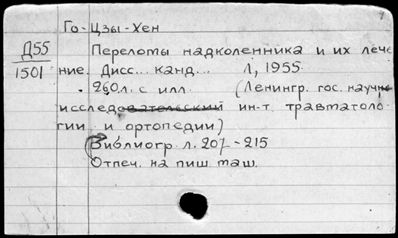 Го-Цзы-Хен
Д55
1501
Переломы надколенника и их лече
ние. Дисс... канд... Л, 1955.
260л. с илл. (Ленингр. гос. научно
исследовательский ин-т травматоло-
гии и ортопедии)
Библиогр. л. 207-215
Отпеч. на пиш. маш.